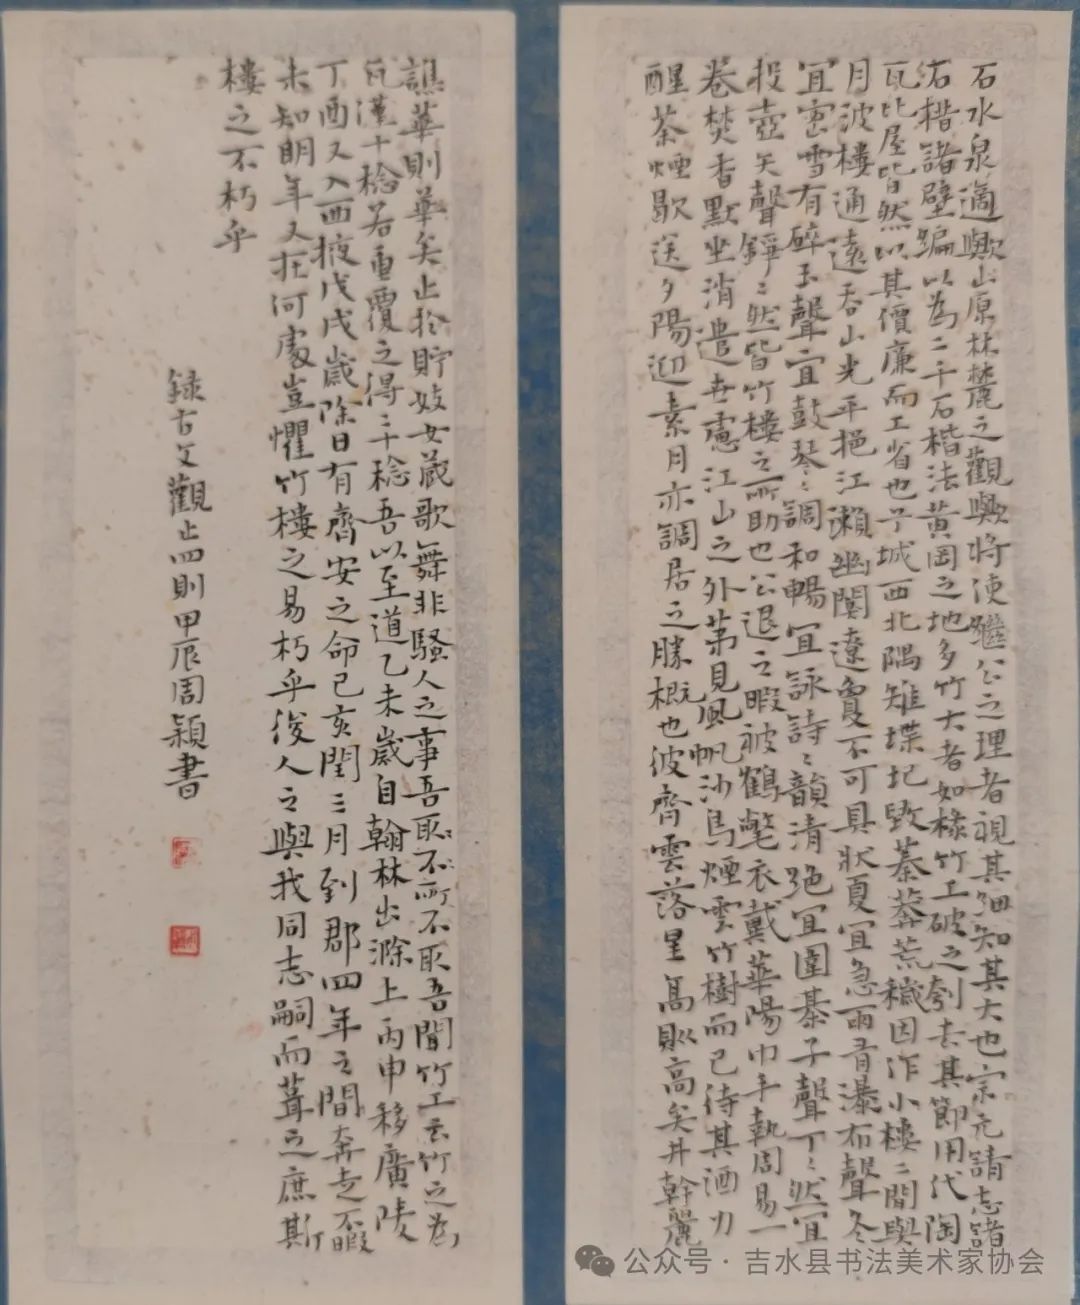 石水泉適歟山原林麓之觀歟將使繼公之理者視其細知其大也宗元請志諸
石楷諸壁編以為二千石楷法黃岡之地多竹大者如椽竹工破之刳去其節用代陶
瓦比屋皆然以其價廉而工省也子城西北隅雉堞圮毀蓁莽荒穢因作小樓二間與
月波樓通遠吞山光平挹江瀨幽闃遼敻不可具狀夏宜急雨有瀑布聲冬
宜密雪有碎玉聲宜鼓琴〻調和暢宜詠詩〻韻清絕宜圍棊子聲丁〻然宜
投壺矢聲錚〻然皆竹樓之所助也公退之暇被鶴氅衣戴華陽巾手執周易一
卷焚香默坐消遣世慮江山之外第見風帆沙鳥煙雲竹樹而已待其酒力
醒茶煙歇送夕陽迎素月亦謫居之勝概也彼齊雲落星高則高矣井幹麗
譙華則華矣止於貯妓女藏歌舞非騷人之事吾取不所不取吾聞竹工云竹之為
瓦僅十稔若重覆之得二十稔吾以至道乙未歲自翰林出滁上丙申移廣陵
丁酉又入西掖戊戌歲除日有齊安之命己亥閏三月到郡四年之間奔走不暇
未知明年又在何處豈懼竹樓之易朽乎後人之與我同志嗣而葺之庶斯
樓之不朽乎
錄古文觀止四則甲辰周穎書
公众号·吉水县书法美术家协会